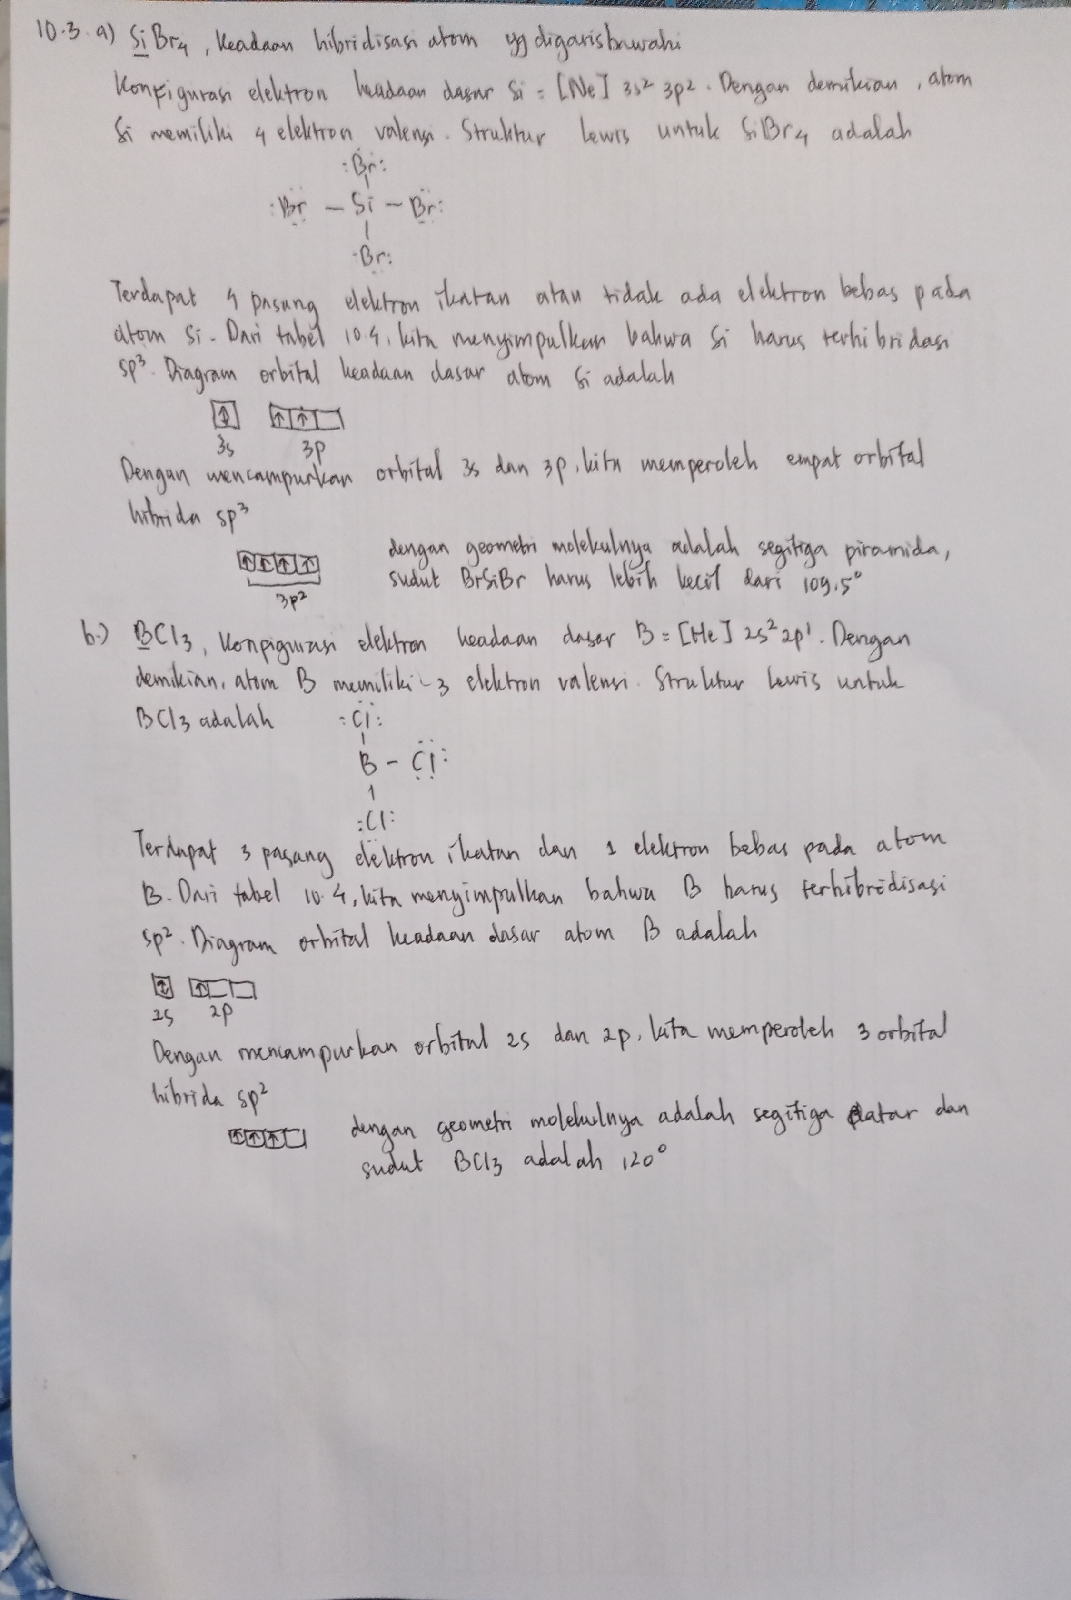 10.3. a) SiBr4, Keadaan hibridisasi atom yg digarisbawahi
Konfigurasi elektron keadaan dasar Si = [Ne] 3s² 3p². Dengan demikian, atom
Si memiliki 4 elektron valensi. Struktur lewis untuk SiBr4 adalah
:Br:
:Br – Si – Br:
Br:
Terdapat 4 pasang elektron ikatan atau tidak ada elektron bebas pada
atom Si. Dari tabel 10.4, kita menyimpulkan bahwa Si harus terhibridasi
sp³. Diagram orbital keadaan dasar atom Si adalah
3s 3p
Dengan mencampurkan orbital 3s dan 3p, kita memperoleh empat orbital
hibrida sp³
dengan geometri molekulnya adalah segitiga piramida,
sudut BrSiBr harus lebih kecil dari 109,5°
3p²
b.) BCl3, Konpigurasi elektron keadaan dasar B = [He] 2s² 2p¹. Dengan
demikian, atom B memiliki 3 elektron valensi. Struktur lewis untuk
BCl3 adalah :Cl:
B – Cl:
:Cl:
Terdapat 3 pasang elektron ikatan dan 1 elektron bebas pada atom
B. Dari tabel 10.4, kita menyimpulkan bahwa B harus terhibridisasi
sp². Diagram orbital keadaan dasar atom B adalah
2s 2p
Dengan mencampurkan orbital 2s dan 2p, kita memperoleh 3 orbital
hibrida sp²
dengan geometri molekulnya adalah segitiga datar dan
sudut BCl3 adalah 120°